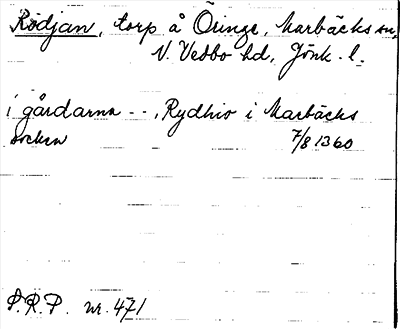 Rödjan, torp å Öringe, Marbäcks sn,
N. Vedbo hd, Jönk. l.
i gårdarna --, Rydhio i Marbäcks
socken 7/8 1360
S.R.P. nr. 471